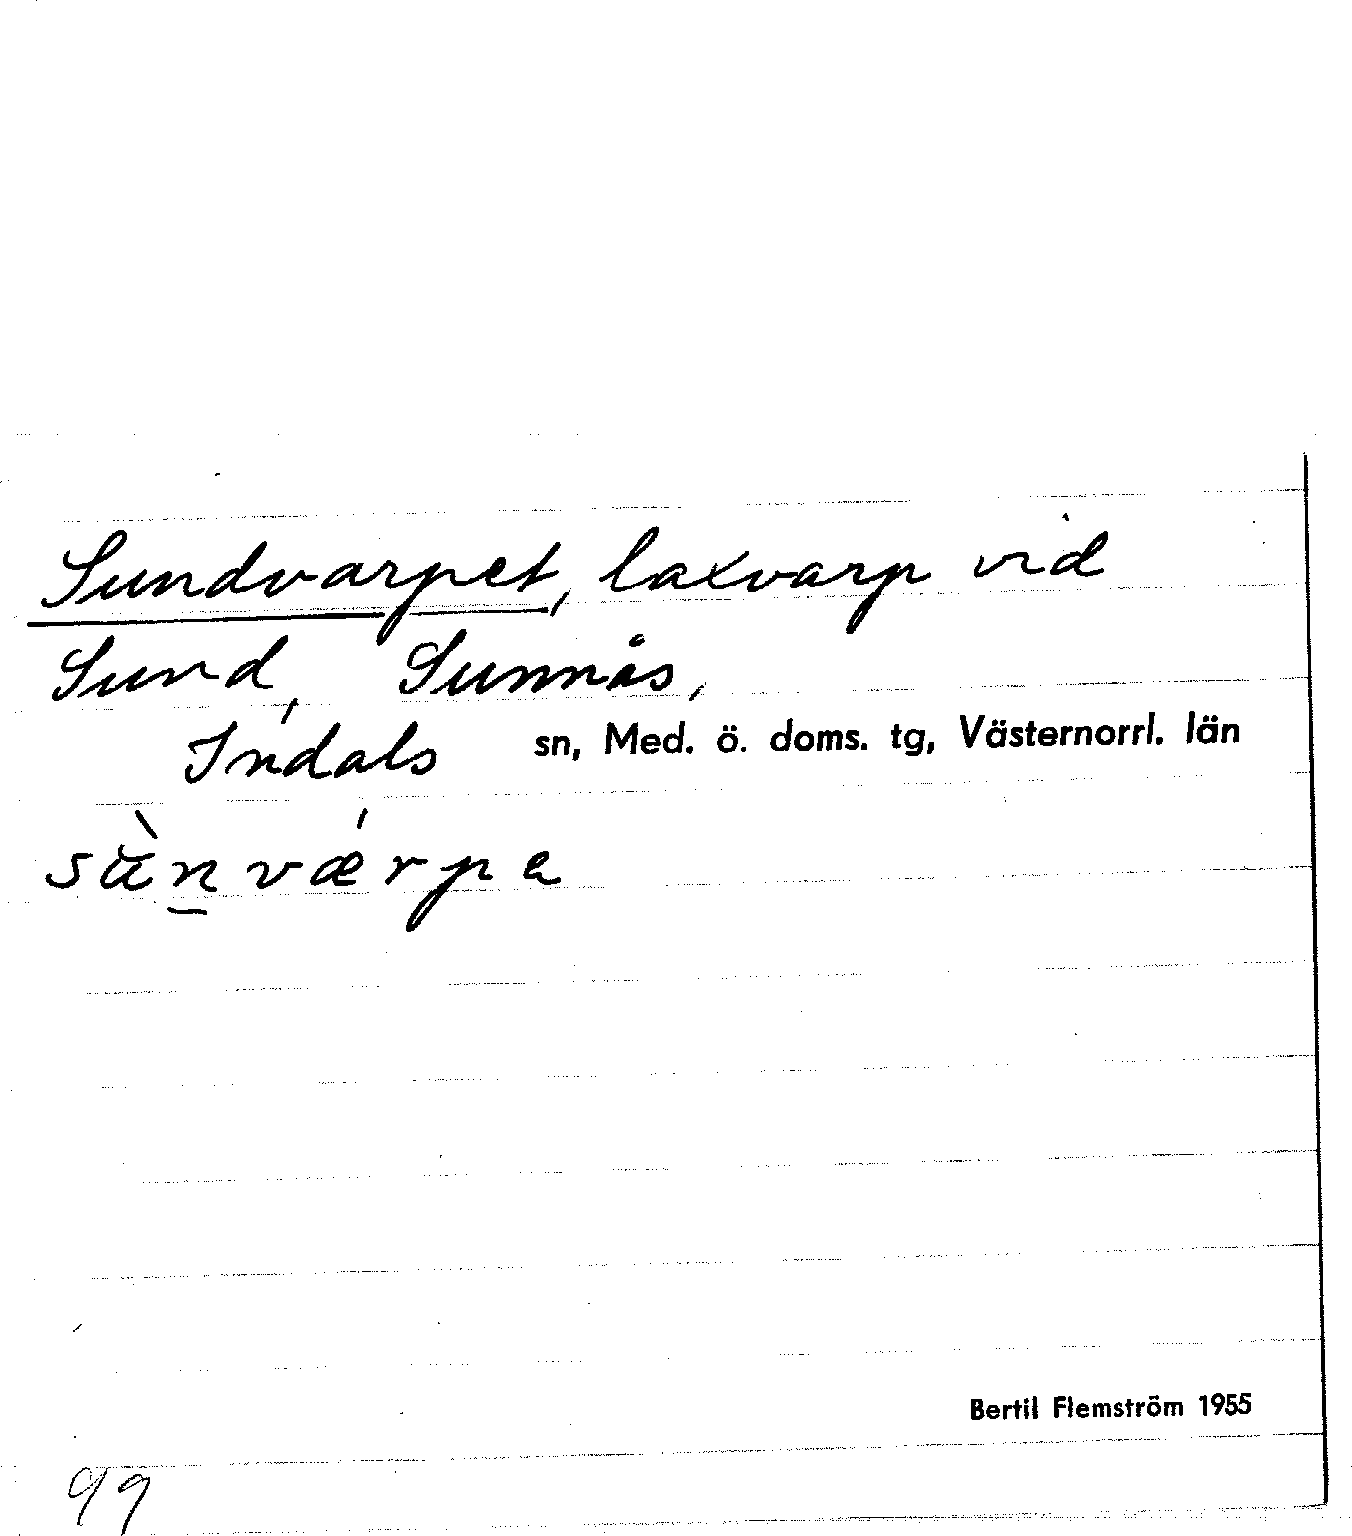 Sundvarpet, laxvarp vid
Sund, Sunnås,
Indals sn, Med. ö. doms. tg, Västernorrl. län
Bertil Flemström 1955
99